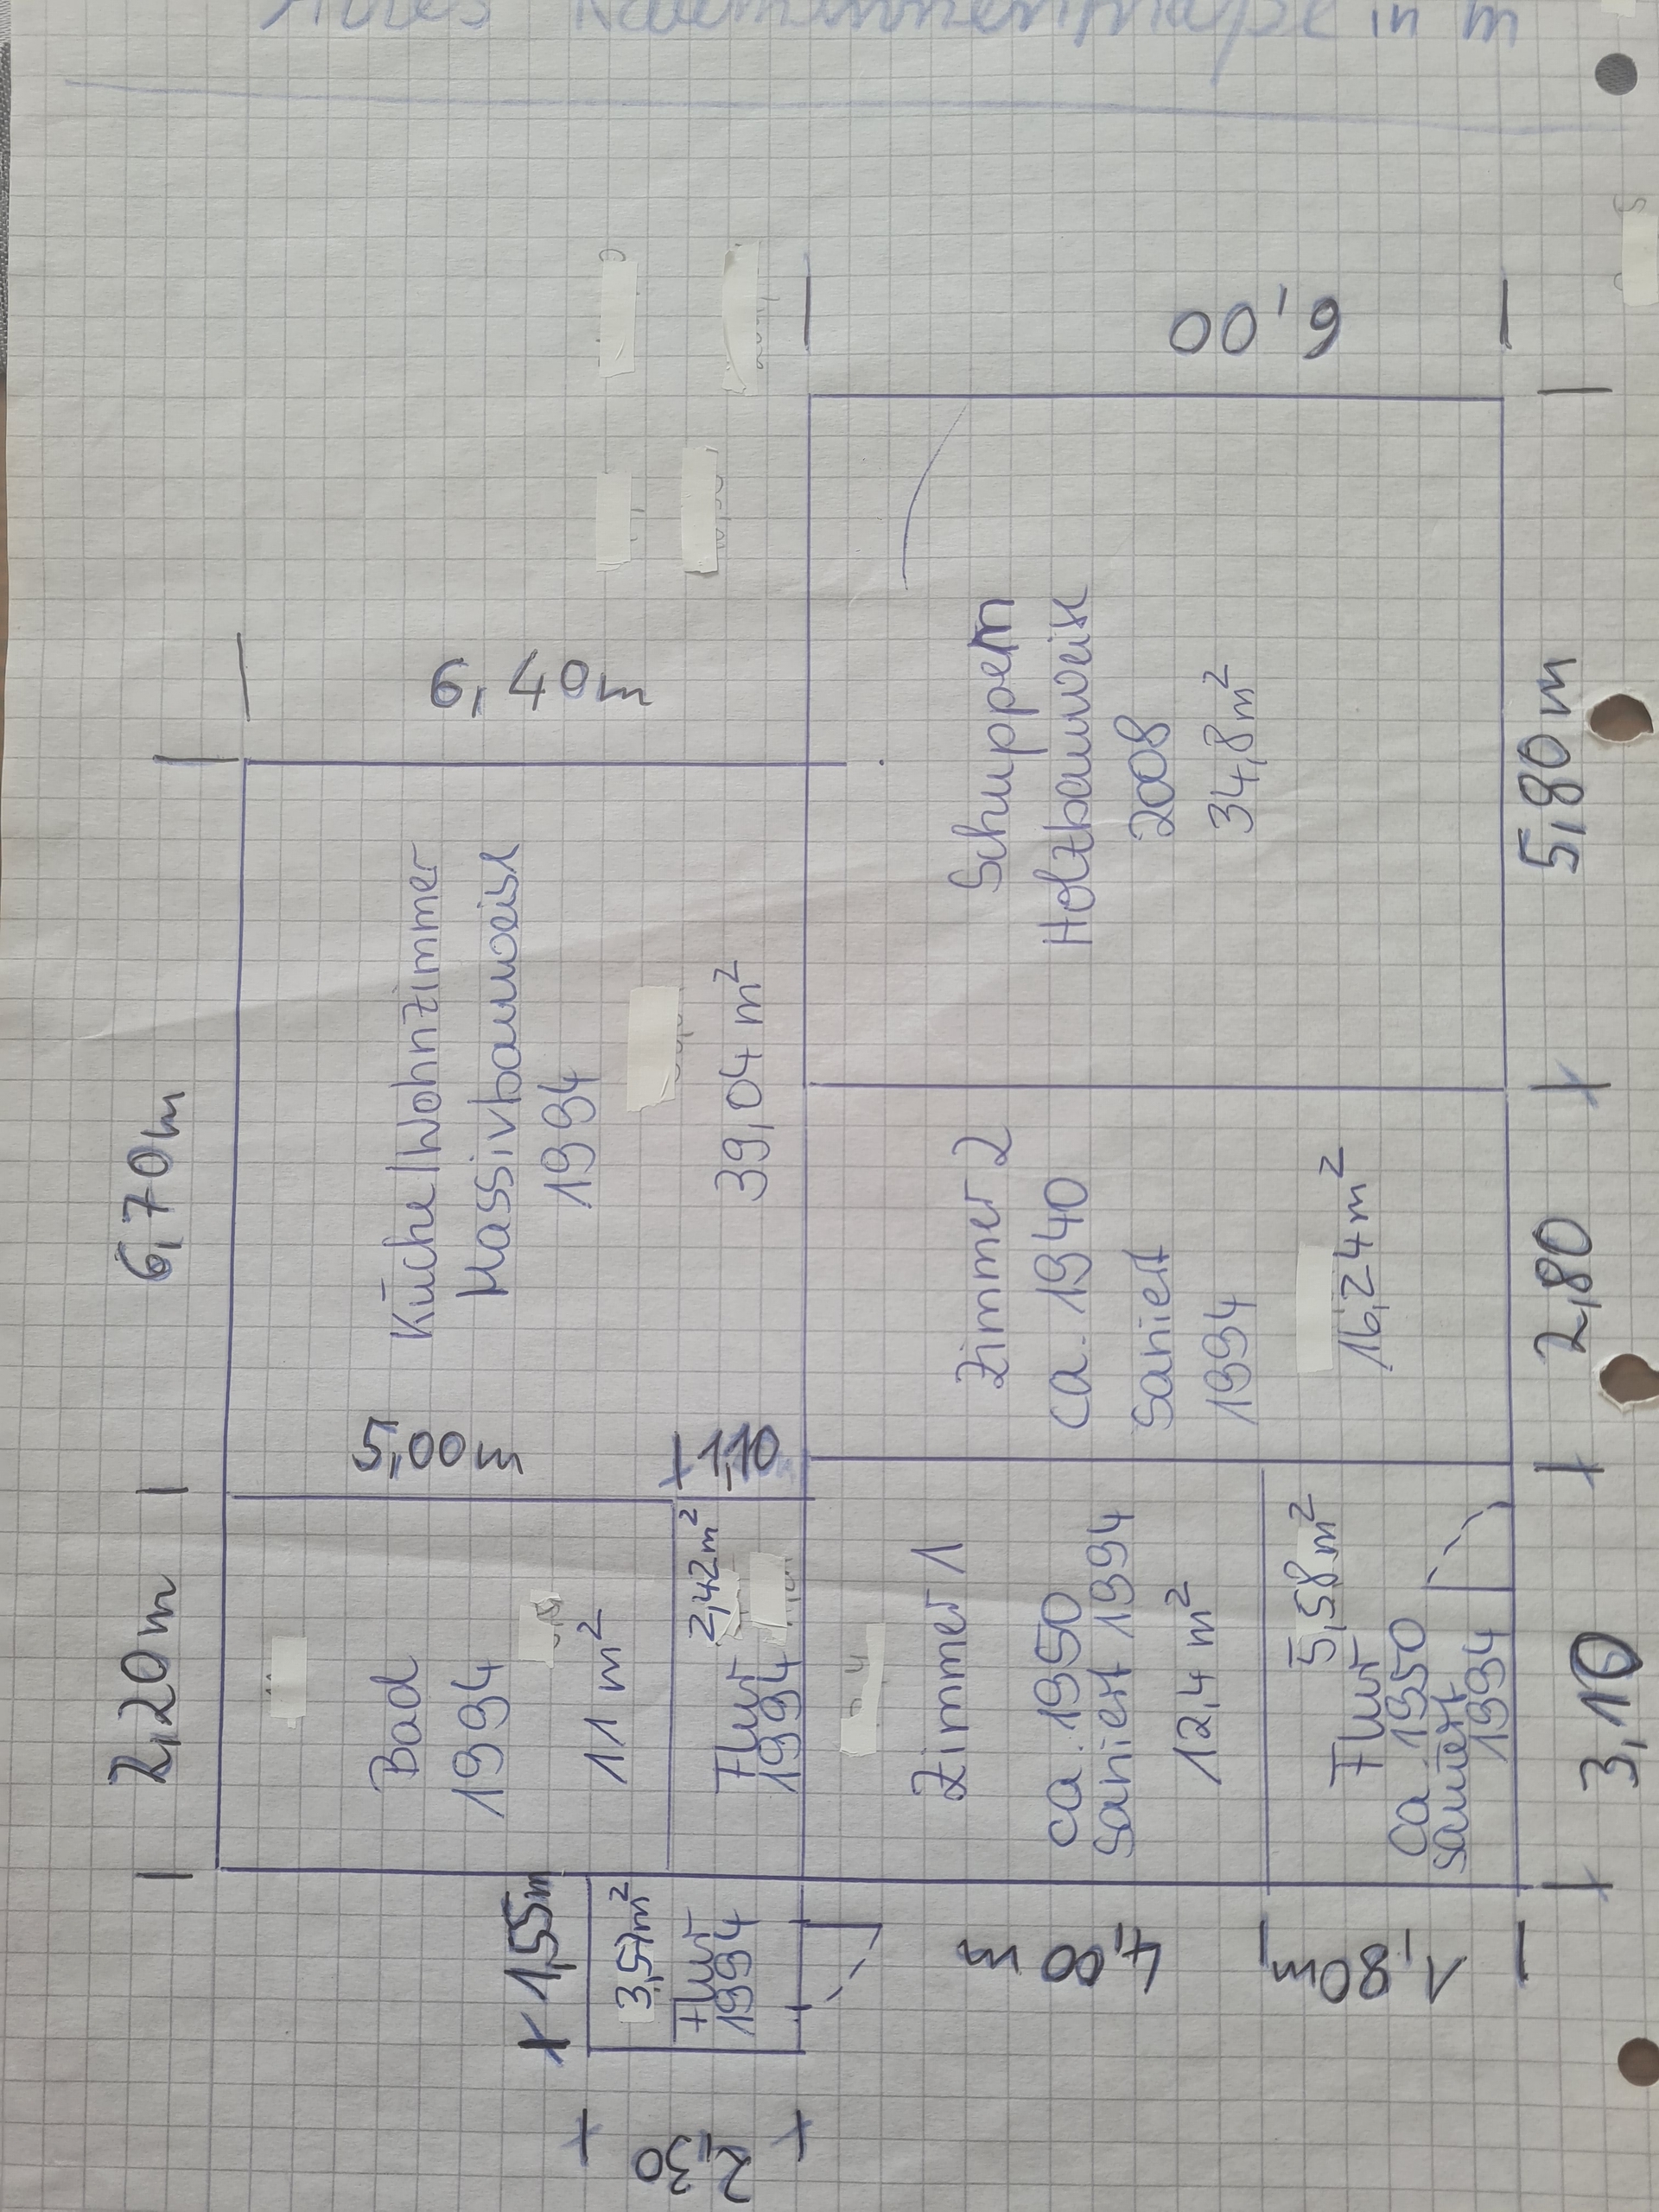 Alles Rauminnenmaße in m
6,00
6,40m
6,70m
Küche/Wohnzimmer
Massivbauweise
1994
39,04m²
Schuppen
Holzbauweise
2008
34,8m²
5,80m
5,00m
1,10
Zimmer 2
ca. 1940
saniert
1994
16,24m²
2,80
2,20m
Bad
1994
11 m²
2,42m²
Flur
1994
Zimmer 1
ca. 1950
saniert 1994
12,4 m²
5,58m²
Flur
ca. 1950
saniert
1994
3,10
1,55m
3,57m²
Flur
1994
4,00 m
1,80m
2,30